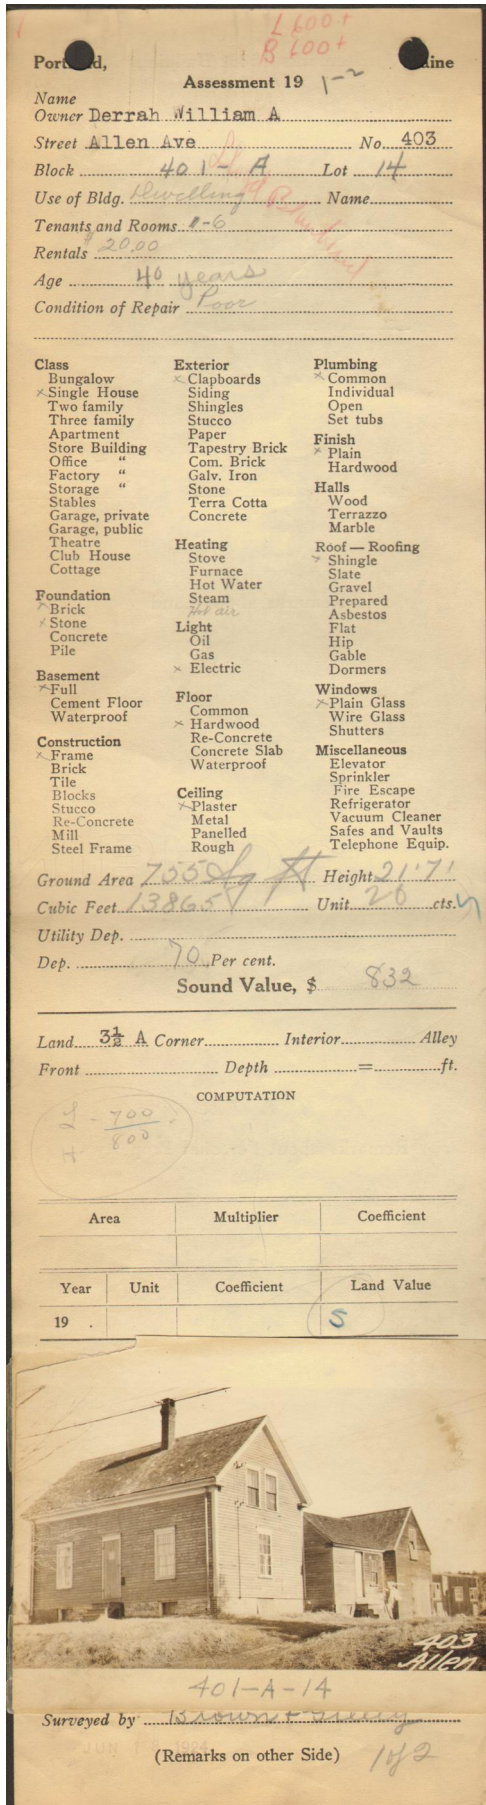 L 600+
B 600+
Portland, Maine
Assessment 19 1-2
Name
Owner Derrah William A
Street Allen Ave No. 403
Block 401-A Lot 14
Use of Bldg. Dwelling Name
Tenants and Rooms 1-6
Rentals $20.00
Age 40 years
Condition of Repair Poor
Class
Bungalow
x Single House
Two family
Three family
Apartment
Store Building
Office "
Factory "
Storage "
Stables
Garage, private
Garage, public
Theatre
Club House
Cottage
Foundation
x Brick
x Stone
Concrete
Pile
Basement
x Full
Cement Floor
Waterproof
Construction
x Frame
Brick
Tile
Blocks
Stucco
Re-Concrete
Mill
Steel Frame
Exterior
x Clapboards
Siding
Shingles
Stucco
Paper
Tapestry Brick
Com. Brick
Galv. Iron
Stone
Terra Cotta
Concrete
Heating
Stove
Furnace
Hot Water
Steam
Hot air
Light
Oil
Gas
x Electric
Floor
Common
x Hardwood
Re-Concrete
Concrete Slab
Waterproof
Ceiling
x Plaster
Metal
Panelled
Rough
Plumbing
x Common
Individual
Open
Set tubs
Finish
x Plain
Hardwood
Halls
Wood
Terrazzo
Marble
Roof — Roofing
x Shingle
Slate
Gravel
Prepared
Asbestos
Flat
Hip
Gable
Dormers
Windows
x Plain Glass
Wire Glass
Shutters
Miscellaneous
Elevator
Sprinkler
Fire Escape
Refrigerator
Vacuum Cleaner
Safes and Vaults
Telephone Equip.
Ground Area 755 Sq ft Height 21'71
Cubic Feet 13865 Unit 20 cts.
Utility Dep.
Dep. 70 Per cent.
Sound Value, $ 832
Land 3½ A Corner Interior Alley
Front Depth = ft.
COMPUTATION
L - 700
H 800
Area Multiplier Coefficient
Year Unit Coefficient Land Value
19 . S
403
Allen
401-A-14
Surveyed by Brown +
JUN 1924
(Remarks on other Side) 1 of 2